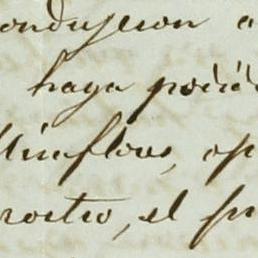 condujeron a
haya podid
Miraflores, op
rostro, el pr